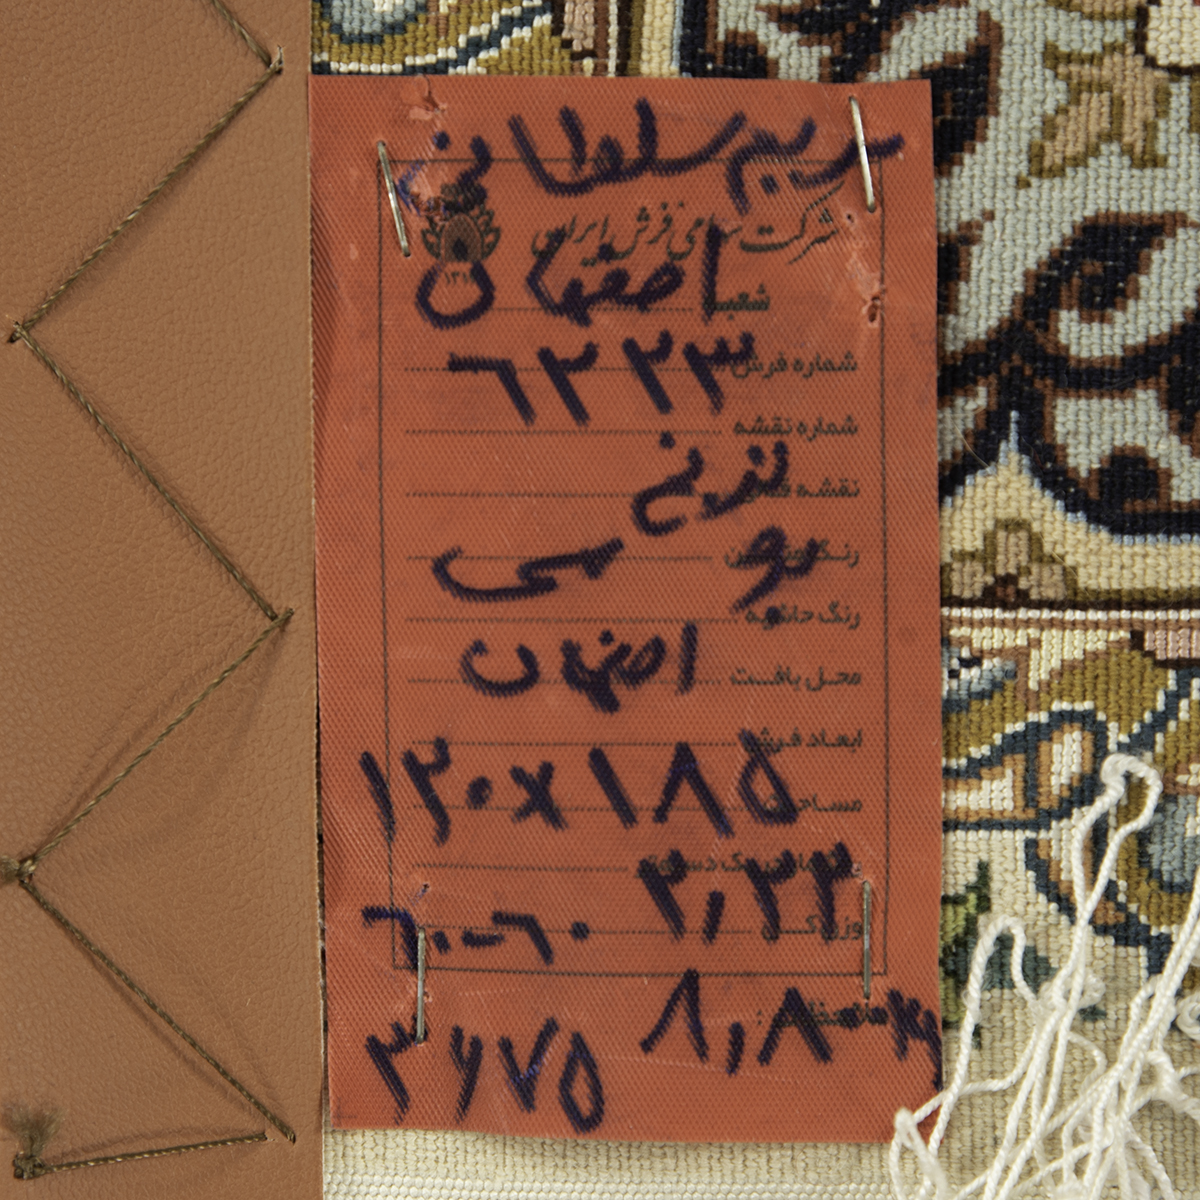 مریم سلطانی
شرکت سهامی فرش ایران
شعبه اصفهان
شماره فرش ۶۲۲۳
شماره نقشه
نقشه
رنگ
رنگ حاشیه
محل بافت اصفهان
ابعاد فرش
۱۸۵ × ۱۲۰
مساحت
۲,۲۲
وزن
۶۰-۶۰
۸,۸۰۰
۳۶۷۵